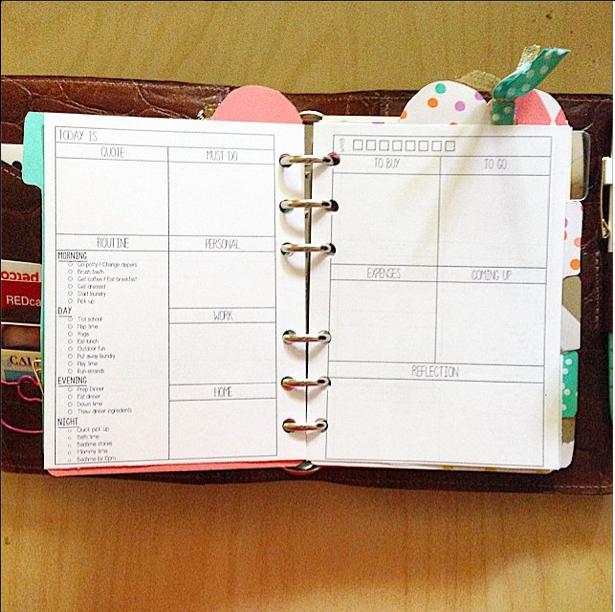 TODAY IS
QUOTE
MUST DO
ROUTINE
MORNING
Go potty / Change diapers
Brush teeth
Get coffee / Eat breakfast
Get dressed
Start laundry
Pick up
DAY
Tot school
Nap time
Yoga
Eat lunch
Outdoor fun
Put away laundry
Play time
Run errands
EVENING
Prep Dinner
Eat dinner
Down time
Thaw dinner ingredients
NIGHT
Quick pick up
Bath time
Bedtime stories
Mommy time
Bedtime by 10pm
PERSONAL
WORK
HOME
TO BUY
TO GO
EXPENSES
COMING UP
REFLECTION
petco
REDca